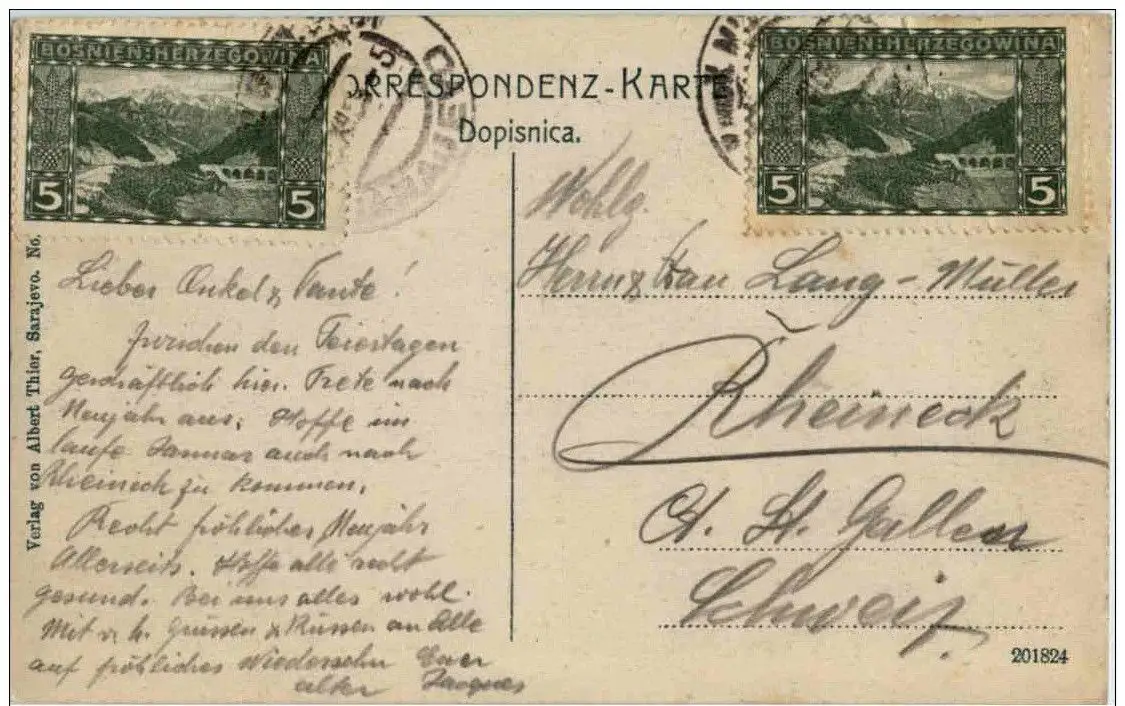 BOSNIEN:HERZEGOWINA
5 5
BOSNIEN:HERZEGOWINA
5 5
ORRESPONDENZ-KARTE
Dopisnica.
Verlag von Albert Thier, Sarajevo. No.
Lieber Onkel & Tante!
zwischen den Feiertagen
geschäftlich hier. Trete nach
Neujahr aus. Hoffe im
laufe Januar auch nach
Rheineck zu kommen.
Recht fröhliches Neujahr
Allerseits. Hoffe alle recht
gesund. Bei uns alles wohl.
Mit v. h. Grüssen & Küssen an Alle
auf fröhliches Wiedersehn Euer
alter Jacques
Wohlg.
Herrn & Frau Lang-Müller
Rheineck
Ct. St. Gallen
Schweiz.
201824